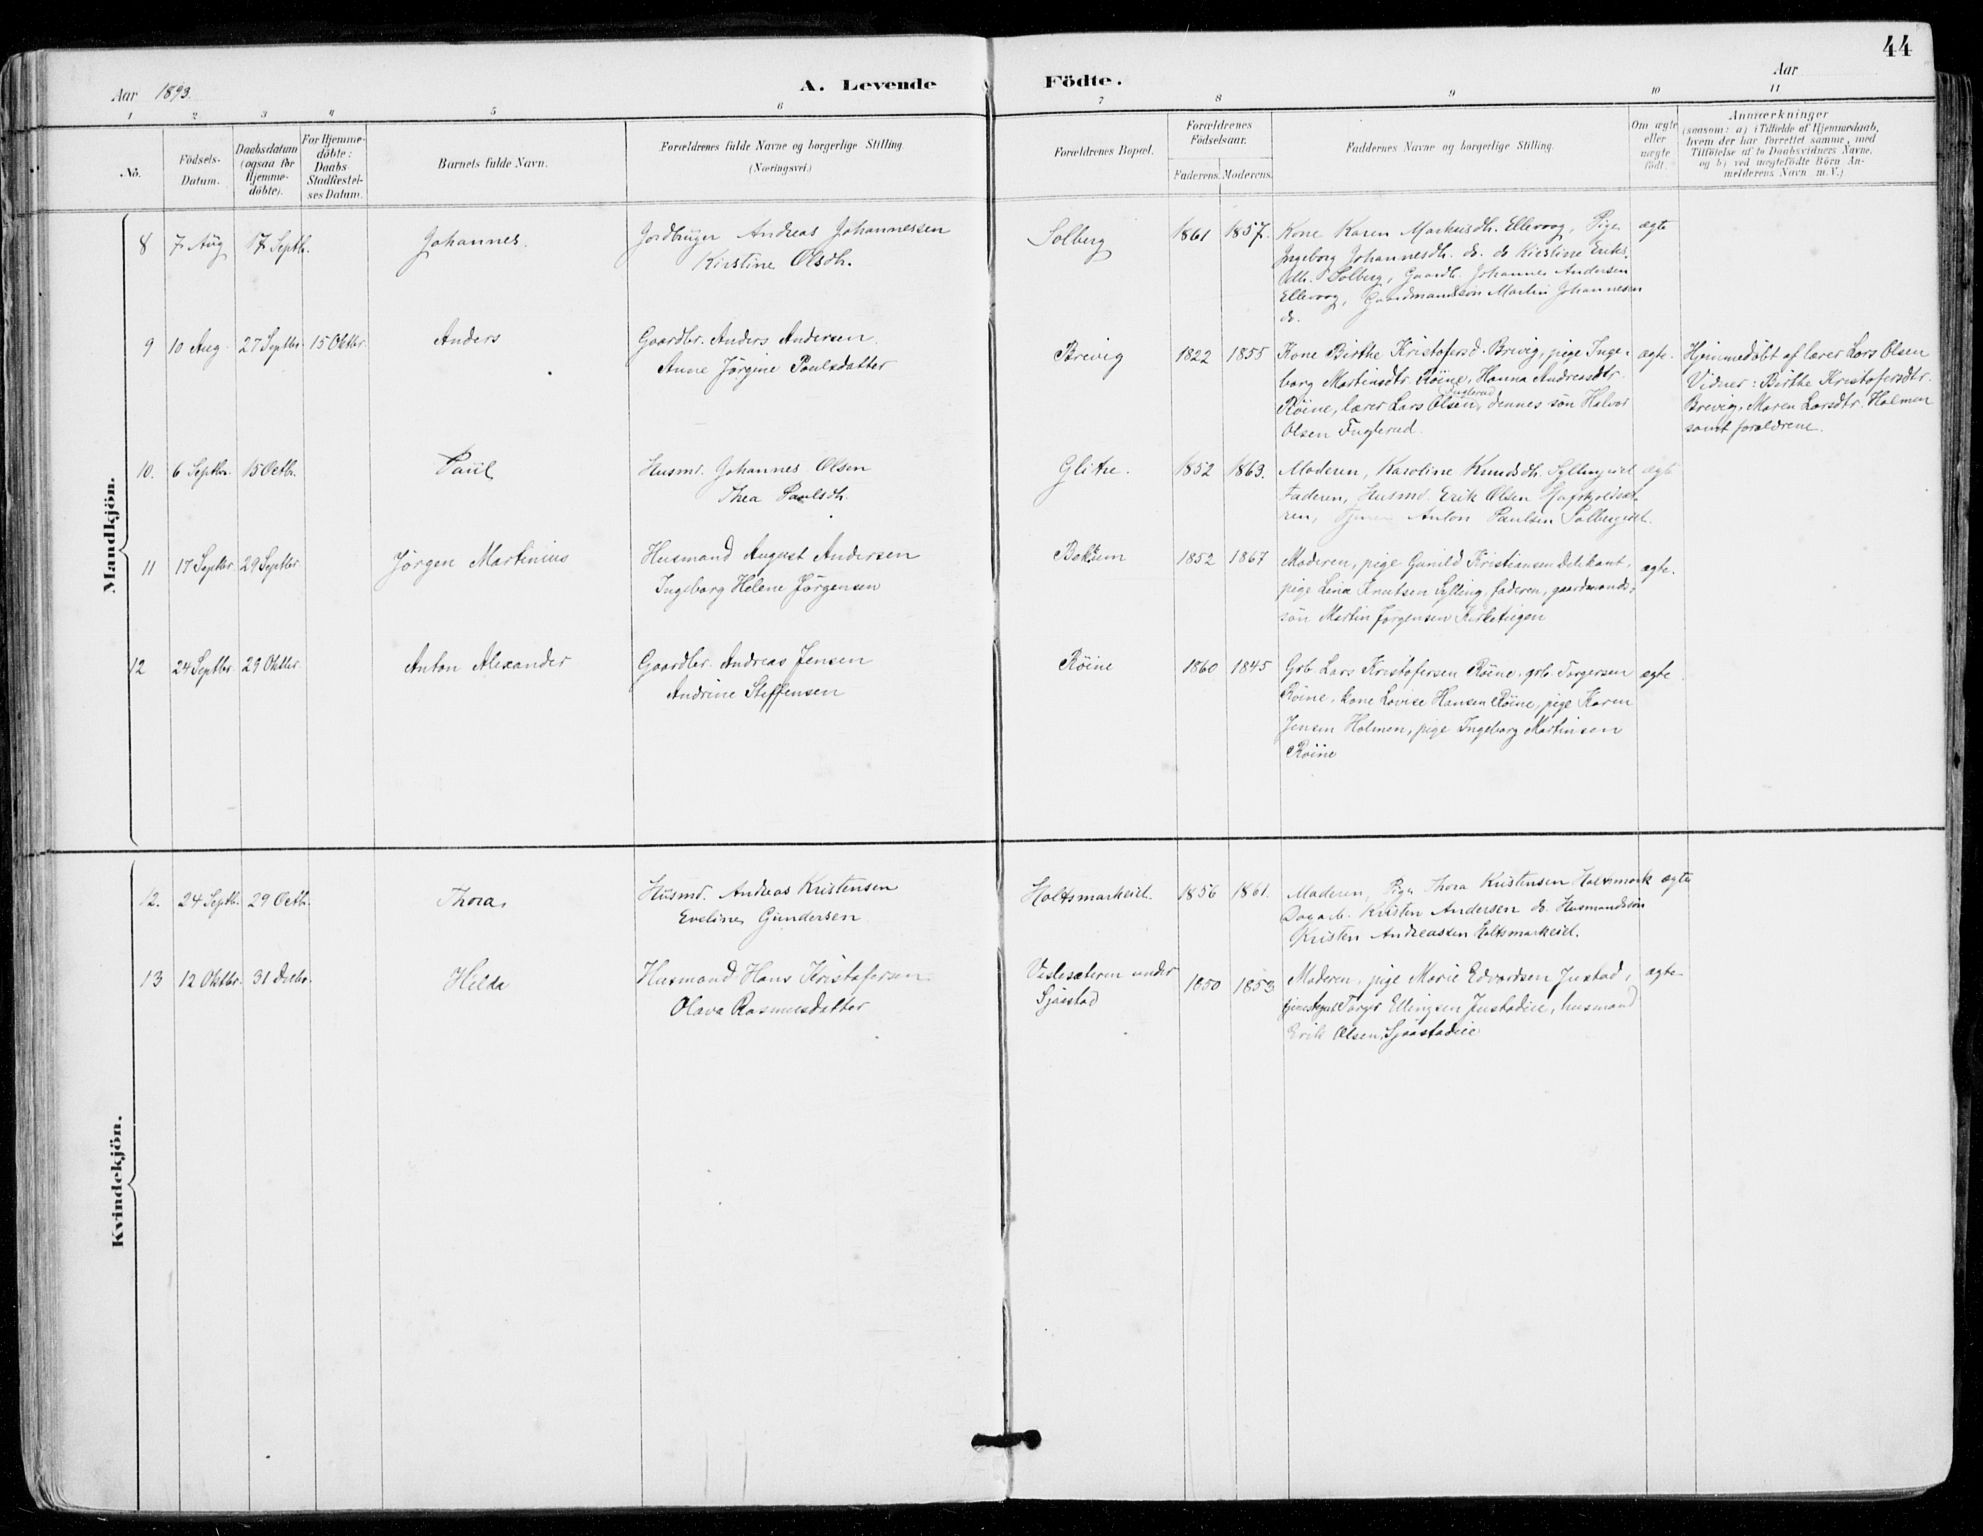 44
Aar 1893.
A. Levende Födte.
Aar
1 2 3 4 5 6 7 8 9 10 11
No.
Födsels-Datum.
Daabsdatum (ogsaa for Hjemme-döbte).
For Hjemme-döbte: Daabs Stadfæstelses Datum.
Barnets fulde Navn.
Forældrenes fulde Navne og borgerlige Stilling. (Næringsvei.)
Forældrenes Bopæl.
Forældrenes Födselsaar.
Faderens. Moderens.
Faddernes Navne og borgerlige Stilling.
Om ægte eller uægte födt.
Anmærkninger
(saasom: a) i Tilfælde af Hjemmedaab, hvem der har forrettet samme, med Tilföielse af to Daabsvidners Navne, og b) ved uægtefödte Börn Anmelderens Navn m. V.)
Mandkjön.
8 7 Aug 17 Septb. Johannes. Gordbruger Andreas Johannessen Solberg 1861 1857. Kone Karen Markusdh. Ellevog, Pige ægte
Kirstine Olsdh. Ingeborg Johannesdh. do. do Kirstine Eriks.
dh. Solberg, Gaardb. Johannes Andersen
Ellevog, Gaardmandssön Martin Johannesen
do.
9 10 Aug. 27 Septbr. 15 Oktbr. Anders Gaardbr. Anders Andersen Brevig 1822 1855 Kone Birthe Kristofersd. Brevig, pige Inge- ægte. Hjemmedöbt af lærer Lars Olsen
Anne Jörgine Paulsdatter borg Martinsdtr. Röine, Hanna Andreasdtr. Vidner: Birthe Kristofersdtr.
Röine, lærer Lars Olsen Fuglerud, dennes sön Halvor Brevig, Maren Larsdtr. Holmen
Olsen Fuglerud. samt forældrene.
10. 6 Septbr. 15 Octb. Paul Husmd. Johannes Olsen Glitre. 1852 1863. Moderen, Karoline Knudsdh. ægte
Thea Paulsdh. Faderen, Husmd. Erik Olsen
ren, Anton Paulsen Solbergeiet.
11 17 Septbr. 29 Septbr Jörgen Martinius Husmand August Andersen 1852 1867 Moderen, pige Gunild Kristiansen Delikant, ægte.
Ingeborg Helene Jörgensen pige Lina Knutsen Sylling, faderen, gaardmands-
sön Martin Jörgensen
12 24 Septbr. 29 Oktbr. Anton Alexander Gaardbr. Andreas Jensen Röine 1860 1845 Grb. Lars Kristofersen Röine, grb. Torgersen ægte
Andrine Steffensen Röine, kone Lovise Hansen Röine, pige Karen
Jensen Holmen, pige Ingeborg Martinsen
Röine
Kvindekjön.
12. 24 Septb. 29 Octb. Thora. Husmd. Andreas Kristensen Holtsmarkeid. 1856 1861. Moderen, Pige Thora Kristensen Holtsmark ægte
Eveline Gundersen Kristen Andersen do. Husmandssön
Kristen Andreassen Holtsmarkeid.
13 12 Oktbr. 31 Decbr. Hilda Husmand Hans Kristofersen Veslesæteren under 1850 1853 Moderen, pige Marie Edvardsen Justad, ægte
Olava Rasmusdatter Sjåstad Torger Ellingsen Justadeie, husmand
Erik Olsen, Sjaastadeie